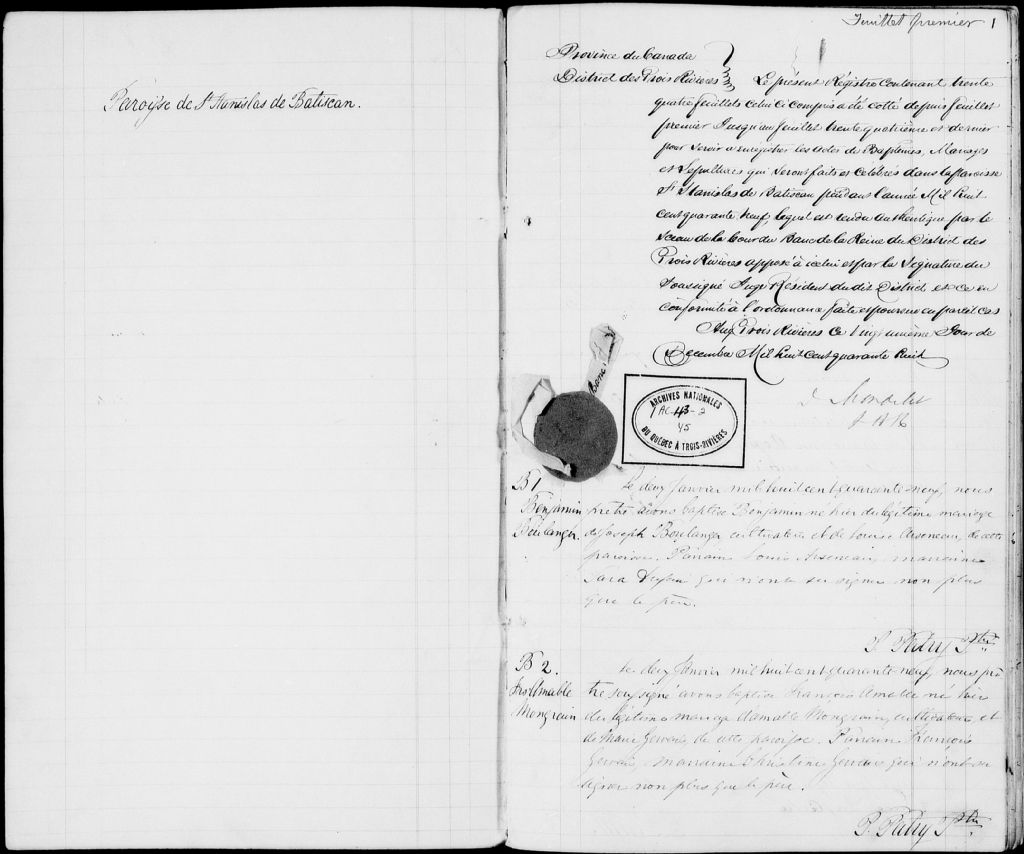 Paroisse de St Stanislas de Batiscan.
Feuillet premier 1
Province du Canada
District des Trois Rivières
Le présent Régistre contenant trente
quatre feuillets celui ci compris a été cotté depuis feuillet
premier Jusqu'au feuillet trente quatrième et dernier
pour servir a enregistrer les actes de Baptêmes, Mariages
et Sepultures qui seront faits et célébrés dans la paroisse
St Stanislas de Batiscan pendant l'année Mil huit
cent quarante neuf, lequel est rendu authentique par le
Sceau de la Cour du Banc de la Reine du District des
Trois Rivières apposé à icelui et par la Signature du
Soussigné Juge Résident du dit District et ce en
conformité à l'ordonnance faite et pourvue en pareil cas
Aux Trois Rivières ce Vingt unième Jour de
Decembre Mil huit cent quarante huit
Mondelet
Banc
ARCHIVES NATIONALES
DU QUÉBEC À TROIS-RIVIÈRES
45
B 1
Benjamin
Boulanger.
Le deux Janvier mil huit cent quarante neuf, nous
prêtre avons baptisé Benjamin né hier du légitime mariage
de Joseph Boulanger cultivateur et de Louise Arseneau, de cette
paroisse. Parrain Louis Arseneau, marraine
Sara qui n'ont su signer non plus
que le père.
P. Patry Ptre
B 2.
Frs Amable
Mongrain
Le deux Janvier mil huit cent quarante neuf, nous prê
tre soussigné avons baptisé François Amable né hier
du légitime mariage d'Amable Mongrain, cultivateur et
de Marie Gervais, de cette paroisse. Parrain François
Gervais, marraine Christine Gervais qui n'ont su
signer non plus que le père.
P. Patry Ptre